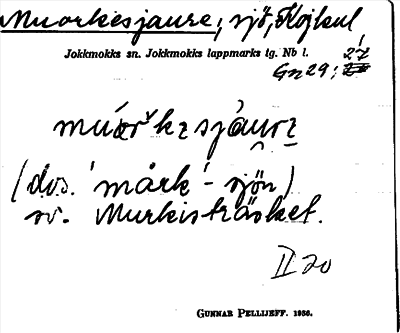 Muorkesjaure, sjö, Kojkul
Jokkmokks sn. Jokkmokks lappmarks tg. Nb l. 27
Gn 29;
muorˇkesjáurε
(dvs. 'mårk'-sjön)
sv. Murkisträsket.
II 20
GUNNAR PELLIJEFF. 1956.